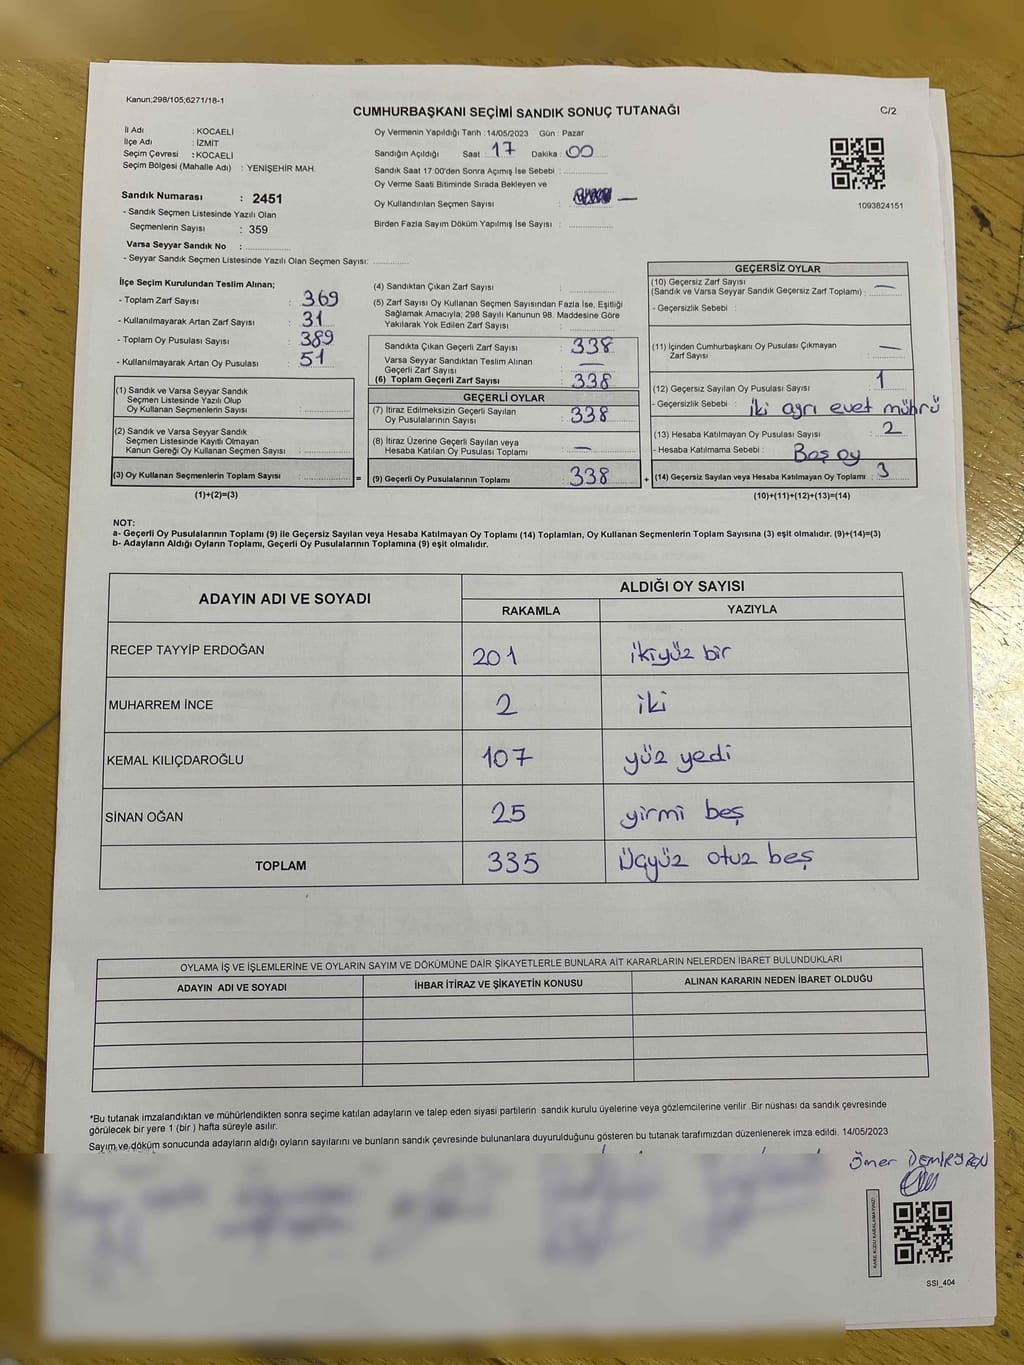 Kanun;298/105;6271/18-1
CUMHURBAŞKANI SEÇİMİ SANDIK SONUÇ TUTANAĞI
C/2
İl Adı : KOCAELİ
İlçe Adı : İZMİT
Seçim Çevresi : KOCAELİ
Seçim Bölgesi (Mahalle Adı) : YENİŞEHİR MAH.
Sandık Numarası : 2451
- Sandık Seçmen Listesinde Yazılı Olan
Seçmenlerin Sayısı : 359
Varsa Seyyar Sandık No :
- Seyyar Sandık Seçmen Listesinde Yazılı Olan Seçmen Sayısı:
Oy Vermenin Yapıldığı Tarih :14/05/2023 Gün : Pazar
Sandığın Açıldığı Saat 17 Dakika : 00
Sandık Saat 17.00'den Sonra Açımış İse Sebebi :
Oy Verme Saati Bitiminde Sırada Bekleyen ve
Oy Kullandırılan Seçmen Sayısı : —
Birden Fazla Sayım Döküm Yapılmış İse Sayısı :
1093824151
İlçe Seçim Kurulundan Teslim Alınan;
- Toplam Zarf Sayısı : 369
- Kullanılmayarak Artan Zarf Sayısı : 31
- Toplam Oy Pusulası Sayısı : 389
- Kullanılmayarak Artan Oy Pusulası : 51
(1) Sandık ve Varsa Seyyar Sandık
Seçmen Listesinde Yazılı Olup
Oy Kullanan Seçmenlerin Sayısı :
(2) Sandık ve Varsa Seyyar Sandık
Seçmen Listesinde Kayıtlı Olmayan
Kanun Gereği Oy Kullanan Seçmen Sayısı :
(3) Oy Kullanan Seçmenlerin Toplam Sayısı : =
(1)+(2)=(3)
(4) Sandıktan Çıkan Zarf Sayısı :
(5) Zarf Sayısı Oy Kullanan Seçmen Sayısından Fazla İse, Eşitliği
Sağlamak Amacıyla; 298 Sayılı Kanunun 98. Maddesine Göre
Yakılarak Yok Edilen Zarf Sayısı :
Sandıkta Çıkan Geçerli Zarf Sayısı : 338
Varsa Seyyar Sandıktan Teslim Alınan
Geçerli Zarf Sayısı : —
(6) Toplam Geçerli Zarf Sayısı : 338
GEÇERLİ OYLAR
(7) İtiraz Edilmeksizin Geçerli Sayılan
Oy Pusulalarının Sayısı : 338
(8) İtiraz Üzerine Geçerli Sayılan veya
Hesaba Katılan Oy Pusulası Toplamı : —
(9) Geçerli Oy Pusulalarının Toplamı : 338 +
GEÇERSİZ OYLAR
(10) Geçersiz Zarf Sayısı
(Sandık ve Varsa Seyyar Sandık Geçersiz Zarf Toplamı) : —
- Geçersizlik Sebebi :
(11) İçinden Cumhurbaşkanı Oy Pusulası Çıkmayan
Zarf Sayısı : —
(12) Geçersiz Sayılan Oy Pusulası Sayısı : 1
- Geçersizlik Sebebi : İki ayrı evet mührü
(13) Hesaba Katılmayan Oy Pusulası Sayısı : 2
- Hesaba Katılmama Sebebi : Boş oy
(14) Geçersiz Sayılan veya Hesaba Katılmayan Oy Toplamı : 3
(10)+(11)+(12)+(13)=(14)
NOT:
a- Geçerli Oy Pusulalarının Toplamı (9) ile Geçersiz Sayılan veya Hesaba Katılmayan Oy Toplamı (14) Toplamları, Oy Kullanan Seçmenlerin Toplam Sayısına (3) eşit olmalıdır. (9)+(14)=(3)
b- Adayların Aldığı Oyların Toplamı, Geçerli Oy Pusulalarının Toplamına (9) eşit olmalıdır.
ADAYIN ADI VE SOYADI ALDIĞI OY SAYISI
RAKAMLA YAZIYLA
RECEP TAYYİP ERDOĞAN 201 ikiyüz bir
MUHARREM İNCE 2 iki
KEMAL KILIÇDAROĞLU 107 yüz yedi
SİNAN OĞAN 25 yirmi beş
TOPLAM 335 Üçyüz otuz beş
OYLAMA İŞ VE İŞLEMLERİNE VE OYLARIN SAYIM VE DÖKÜMÜNE DAİR ŞİKAYETLERLE BUNLARA AİT KARARLARIN NELERDEN İBARET BULUNDUKLARI
ADAYIN ADI VE SOYADI İHBAR İTİRAZ VE ŞİKAYETİN KONUSU ALINAN KARARIN NEDEN İBARET OLDUĞU
*Bu tutanak imzalandıktan ve mühürlendikten sonra seçime katılan adayların ve talep eden siyasi partilerin sandık kurulu üyelerine veya gözlemcilerine verilir .Bir nüshası da sandık çevresinde
görülecek bir yere 1 (bir ) hafta süreyle asılır.
Sayım ve döküm sonucunda adayların aldığı oyların sayılarını ve bunların sandık çevresinde bulunanlara duyurulduğunu gösteren bu tutanak tarafımızdan düzenlenerek imza edildi. 14/05/2023
Ömer
SSI_404